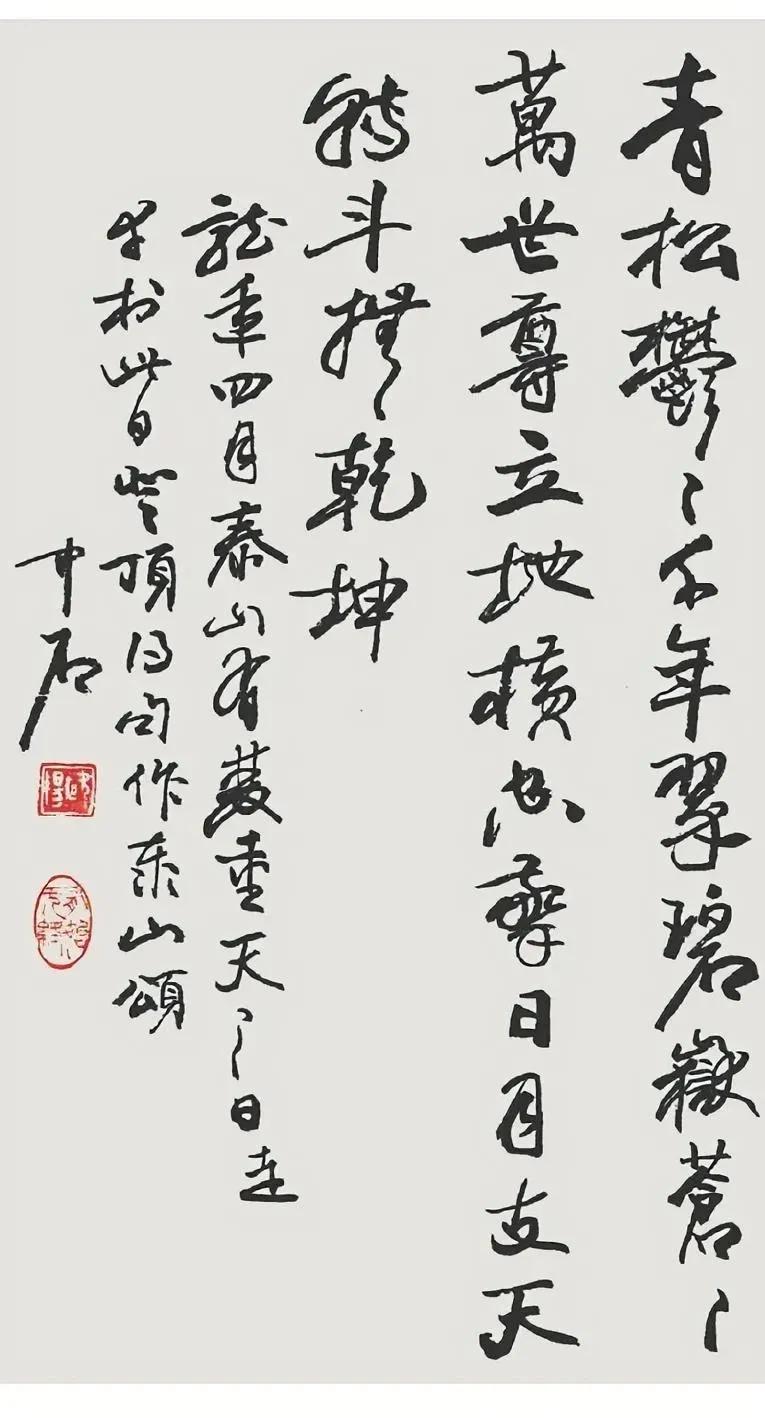 青松鬱〻千年翠碧嶽蒼〻
萬世尊立地横空擎日月支天
轉斗撫乾坤
龍年四月泰山有天〻日
於此日登頂得句作泰山頌
中石